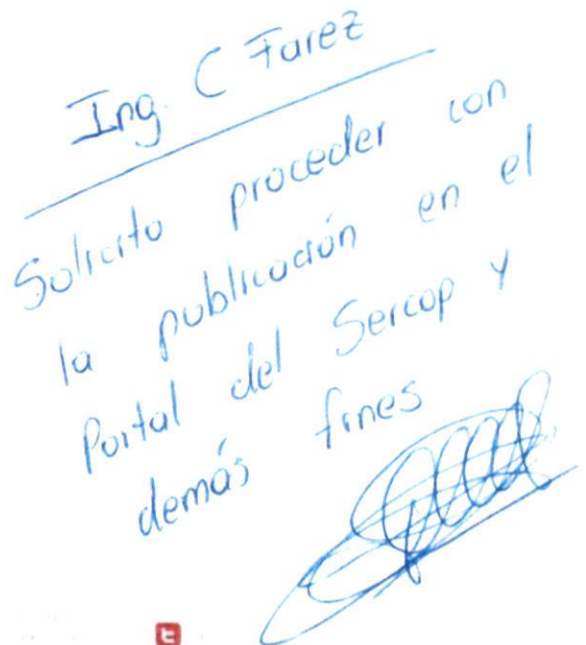 Ing. C Farez
Solicito proceder con
la publicación en el
Portal del Sercop y
demás fines